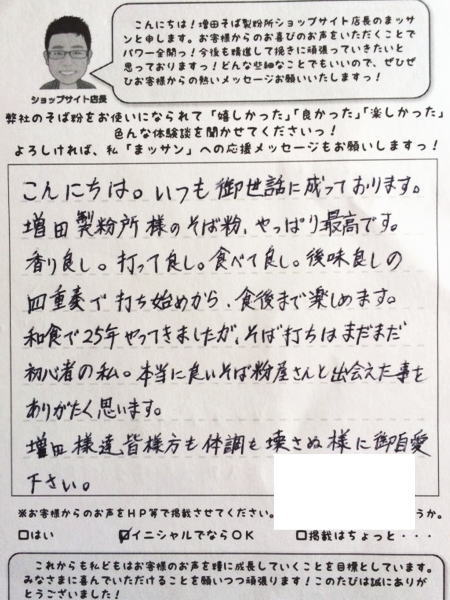 こんにちは！増田そば製粉所ショップサイト店長のまッサン
と申します。お客様からのお喜びのお声をいただくことで
パワー全開っ！今後も精進して挽きに頑張っていきたいと
思っておりますっ！どんな些細なことでもいいので、ぜひぜ
ひお客様からの熱いメッセージお願いいたしますっ！
ショップサイト店長
弊社のそば粉をお使いになられて「嬉しかった」「良かった」「楽しかった」
色んな体験談を聞かせてくださいっ！
よろしければ、私「まッサン」への応援メッセージもお願いしますっ！
こんにちは。いつも御世話に成っております。
増田製粉所様のそば粉、やっぱり最高です。
香り良し。打って良し。食べて良し。後味良しの
四重奏で打ち始めから、食後まで楽しめます。
和食で25年やってきましたが、そば打ちはまだまだ
初心者の私。本当に良いそば粉屋さんと出会えた事を
ありがたく思います。
増田様達皆様方も体調も壊さぬ様に御自愛
下さい。
※お客様からのお声をHP等で掲載させてください。
うか。
□はい ☑イニシャルでならOK □掲載はちょっと・・・
これからも私どもはお客様のお声を糧に成長していくことを目標としています。
みなさまに喜んでいただけることを願いつつ頑張ります！このたびは誠にありが
とうございました！